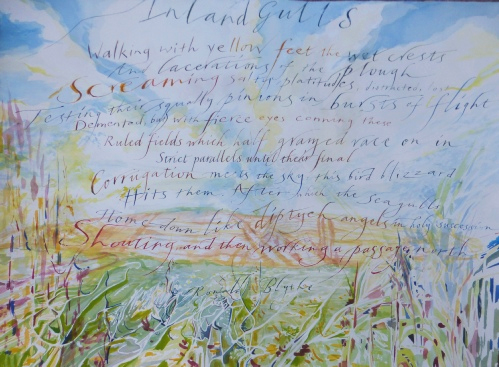 Inland Gulls
Walking with yellow feet the wet crests
the lacerations of the plough
Screaming sailor platitudes,
Testing their squally pinions in bursts of flight
with fierce eyes conning these
Ruled fields which half grained race on in
Strict parallels until their final
Corrugation meets the sky this bird blizzard
Hits them After which the seagulls
Home down like diptych angels in holy succession
Shouting, and then working a passage north
Ronald Blythe